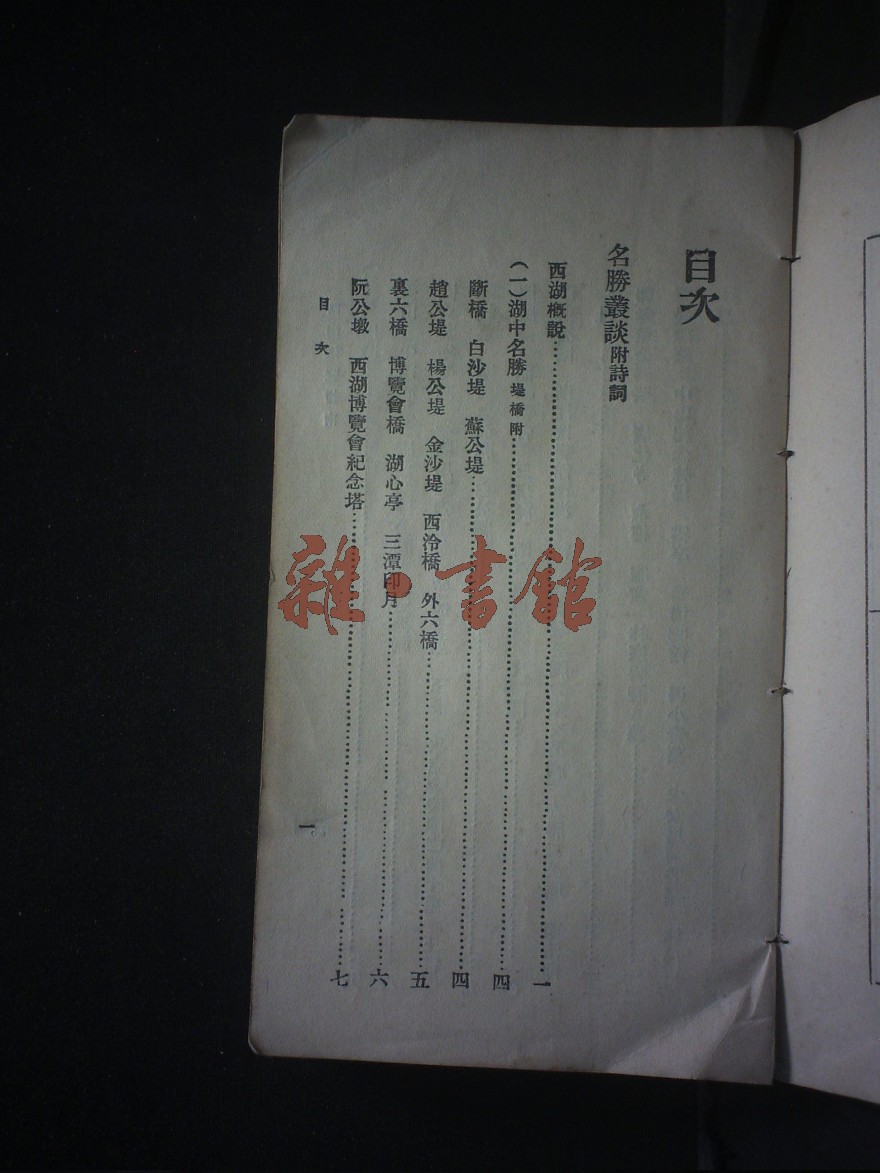 目次
名勝叢談附詩詞
西湖概說…………一
(一)湖中名勝 堤橋附…………四
斷橋 白沙堤 蘇公堤…………四
趙公堤 楊公堤 金沙堤 西泠橋 外六橋…………五
裏六橋 博覽會橋 湖心亭 三潭印月…………六
阮公墩 西湖博覽會紀念塔…………七
目次
一
雜·書館